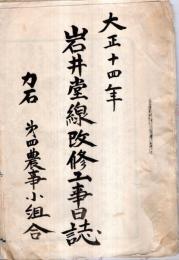 大正十四年
岩井堂線改修工事日誌
力石 第四農事小組合